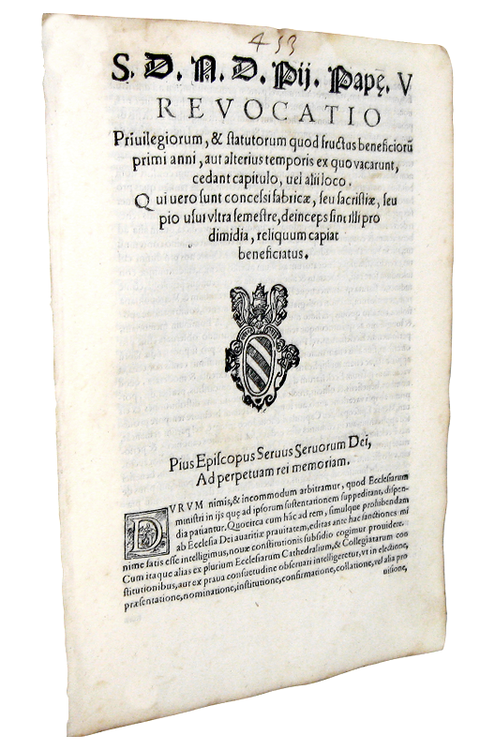 453
S. D. N. D. Pij. Papę. V
REVOCATIO
Priuilegiorum, & ſtatutorum quod fructus beneficiorũ
primi anni, aut alterius temporis ex quo vacarunt,
cedant capitulo, uel alii loco.
Qui uero ſunt conceſsi fabricæ, ſeu ſacriſtiæ, ſeu
pio uſui vltra ſemeſtre, deinceps ſint illi pro
dimidia, reliquum capiat
beneficiatus.
Pius Epiſcopus Seruus Seruorum Dei,
Ad perpetuam rei memoriam.
DVRVM nimis, & incommodum arbitramur, quod Eccleſiarum
miniſtri in ijs quę ad ipſorum ſuſtentationem ſuppeditant, diſpen-
dia patiantur. Quocirca cum hãc ad rem, ſimulque prohibendam
ab Eccleſia Dei auaritiæ prauitatem, editas ante hac ſanctiones mi
nime ſatis eſſe intelligimus, nouæ conſtitutionis ſubſidio cogimur prouidere.
Cum itaque alias ex plurium Eccleſiarum Cathedralium, & Collegiatarum con
ſtitutionibus, aut ex praua conſuetudine obſeruari intelligeretur, vt in electione,
præſentatione, nominatione, inſtitutione, confirmatione, collatione, rel alia pro
uiſione,